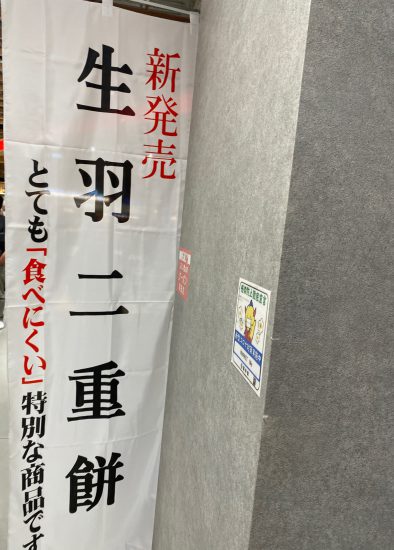 新発売
生羽二重餅
とても「食べにくい」特別な商品です